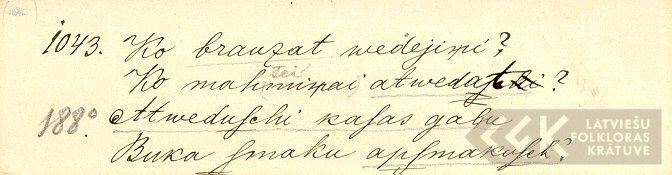 1043. Ko brauzat wedejiņi?
Ko mahmiņai atwedat?
tei
188° Atweduſchi kaſas galu
Buka ſmaku apſmakuſch?
LATVIEŠU
FOLKLORAS
KRĀTUVE